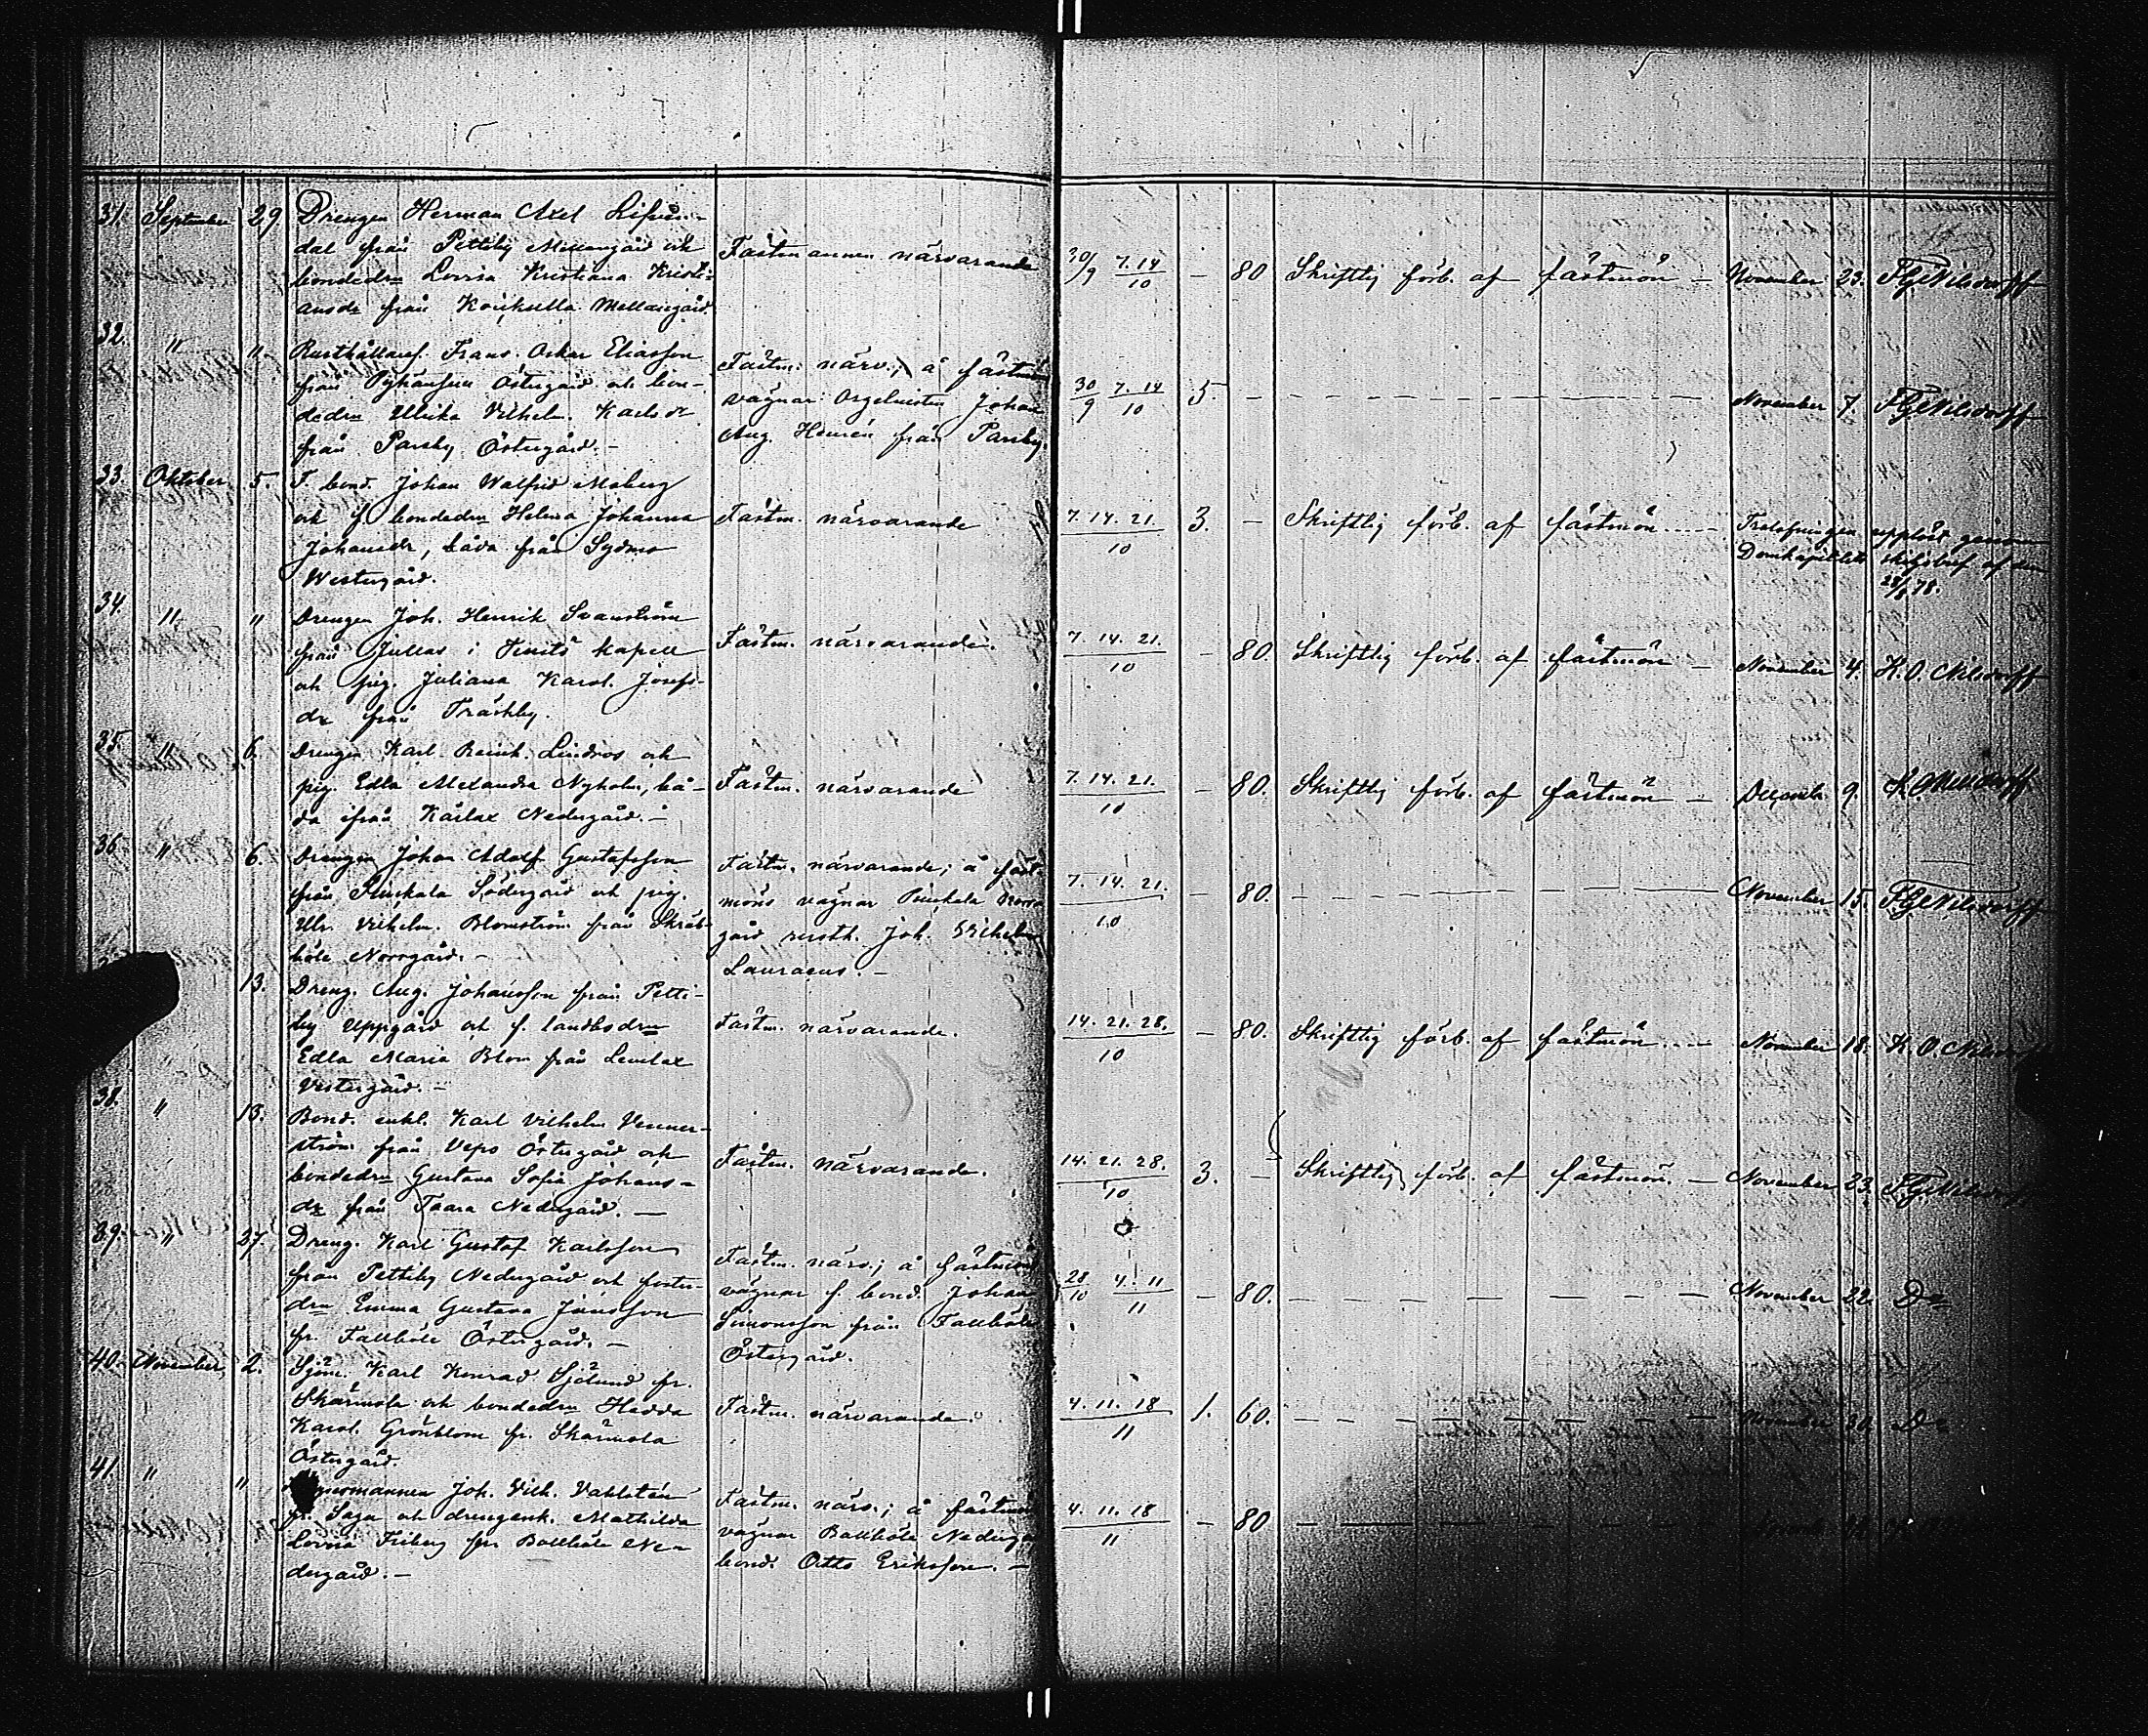 31. September 29 Drengen Herman Axel Lifvän-
dal från Pettiby Mellangård och
bondedn Lovisa Kristiana Kristi-
ansdr från Koirkulla Mellangård.
Fästmannen närvarande
30/9 7.14/10 — 80 Skriftlig förb. af fästmön — November 23. FGNilsdorff
32. " " Rusthållaref. Frans Oskar Eliasson
från Pyhänsuu Östergård och bon-
dedn Ulrika Vilhelm. Karlsdr
från Parsby Östergård. —
Fästm. närv.; å fästmöns
vägnar: Orgelnisten Johan
Aug. Henrén från Parsby
30/9 7.14/10 5. — November 7. FGNilsdorff
33. Oktober 5. F. bond. Johan Walfrid Moberg
och f. bondedn Helena Johanna
Johansdr, båda från Sydmo
Westergård.
Fästm. närvarande
7. 14. 21./10 3. — Skriftlig förb. af fästmön — Trolofningen upplöst genom
Domkapitlets skilsbref af den
78.
34. " " Drengen Joh. Henrik Svanström
från Jullas i Finnö kapell
och pig. Juliana Karol. Josefs-
dr från Träskby.
Fästm. närvarande.
7. 14. 21./10 — 80. Skriftlig förb. af fästmön — November 4. K. O. Nilsdorff
35. " 6. Drengen Karl Reinh. Lindros och
pig. Edla Alexandra Nyholm, bå-
da ifrån Kårlax Nedergård. —
Fästm. närvarande
7. 14. 21./10 — 80. Skriftlig förb. af fästmön — Decemb. 9. K. O. Nilsdorff
36. " 6. Drengen Johan Adolf Gustafsson
från Pinkala Södergård och pig.
Ulr. Vilhelm. Blomström från Skräb-
böle Norrgård. —
Fästm. närvarande; å fäst-
möns vägnar Pinkala Norr
gård rusth. Joh. Vilhelm
Lauraeus. —
7. 14. 21./10 — 80. — November 15. FGNilsdorff
13. Dreng. Aug. Johansson från Petti-
by Uppgård och f. landbodn
Edla Maria Blom från Lemlax
Vestergård. —
Fästm. närvarande.
14. 21. 28./10 — 80. Skriftlig förb. af fästmön — November 18. K. O.
38. " 13. Bond. enkl. Karl Vilhelm Venner-
ström från Vepo Östergård och
bondedn Gustava Sofia Johans-
dr från Taara Nedergård. —
Fästm. närvarande.
14. 21. 28./10 3. — Skriftlig förb. af fästmön. — November 23. FGNilsdorff
39. " 27. Dreng. Karl Gustaf Karlsson
från Pettiby Nedergård och foster-
dn Emma Gustava Jansson
fr. Fallböle Östergård. —
Fästm. närv.; å fästmöns
vägnar f. bond. Johan
Simonsson från Fallböle
Östergård.
28/10 4. 11/11 — 80. — November 22. Do
40. November 2. Sjöm. Karl Konrad Sjölund fr.
Skärmola och bondedn Hedda
Karol. Grönblom fr. Skärmola
Östergård.
Fästm. närvarande.
4. 11. 18/11 1. 60. — November 30. Do
41. " " Joh. Vilh. Vahlstén
fr. Saga och drengenk. Mathilda
Lovisa Friberg fr. Bollböle Ne-
dergård. —
Fästm. närv.; å fästmöns
vägnar Bollböle Nederg
bond. Otto Eriksson. —
4. 11. 18/11 — 80 —